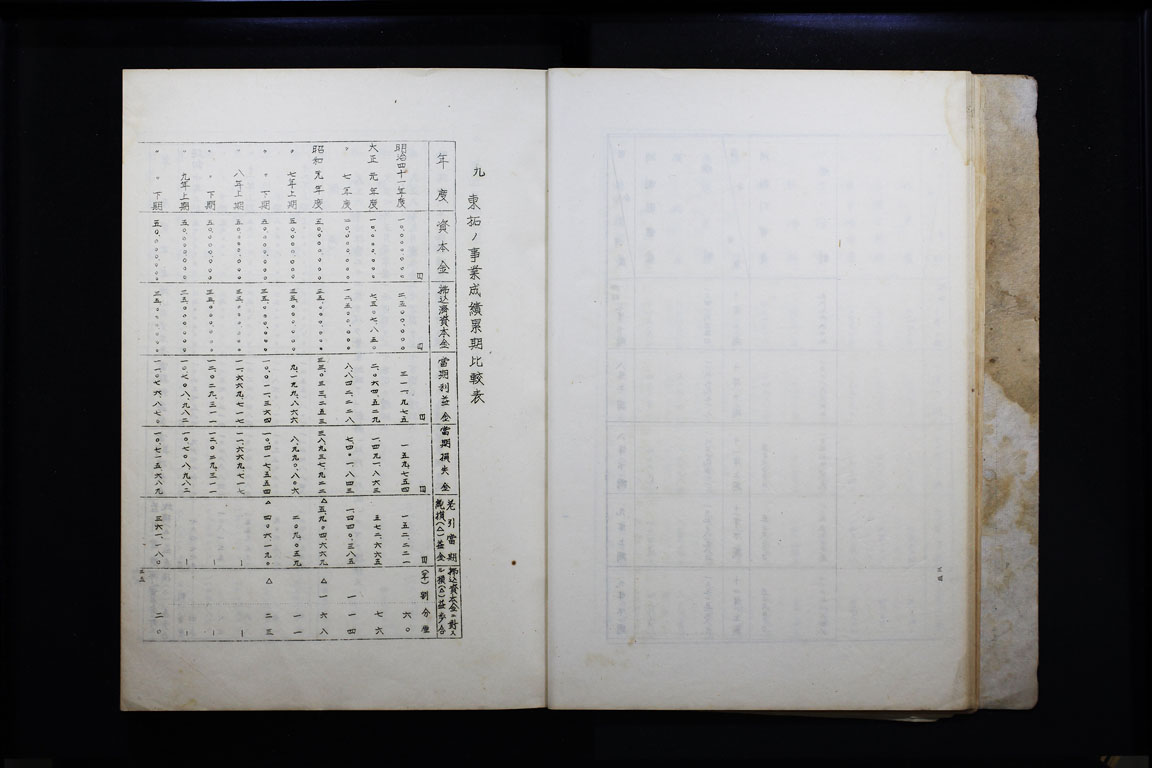 九 東拓ノ事業成績累期比較表
年度 資本金 拂込濟資本金 當期利益金 當期損失金 差引當期純損(△)益金 拂込資本金ニ對スル損(△)益歩合
円 円 円 円 円 (年)割分厘
明治四十一年度 一〇,〇〇〇,〇〇〇 二,五〇〇,〇〇〇 三一一,九七五 一五九,七五四 一五二,二二一 六〇
大正元年度 一〇,〇〇〇,〇〇〇 七,五〇七,八五〇 二,〇六四,五二九 一,四九一,八六三 五七二,六六五 七六
〃 七年度 二〇,〇〇〇,〇〇〇 一二,五〇〇,〇〇〇 八,八四二,二二八 七,四〇一,八四三 一,四四〇,三八五 一一四
昭和元年度 五〇,〇〇〇,〇〇〇 三五,〇〇〇,〇〇〇 三三,〇三三,二五三 三八,九三七,九二二 △五,九〇四,六六九 △一六八
〃 七年上期 五〇,〇〇〇,〇〇〇 三五,〇〇〇,〇〇〇 九,一九九,八六六 八,九九〇,八〇六 二〇九,〇五九 一一
〃 〃 下期 五〇,〇〇〇,〇〇〇 三五,〇〇〇,〇〇〇 一〇,〇一一,三六四 一〇,四一七,五五四 △四〇六,一九〇 △二三
八年上期 五〇,〇〇〇,〇〇〇 三五,〇〇〇,〇〇〇 一一,六六九,七一七 一一,六六九,七一七 — —
〃 〃 下期 五〇,〇〇〇,〇〇〇 三五,〇〇〇,〇〇〇 一二,〇二九,三一一 一二,〇二九,三一一 — —
〃 九年上期 五〇,〇〇〇,〇〇〇 三五,〇〇〇,〇〇〇 一〇,七〇八,九八二 一〇,七〇八,九八二 — —
〃 〃 下期 五〇,〇〇〇,〇〇〇 三五,〇〇〇,〇〇〇 一一,〇七六,八七〇 一〇,七一五,六八九 三六一,一八〇 二〇
三五